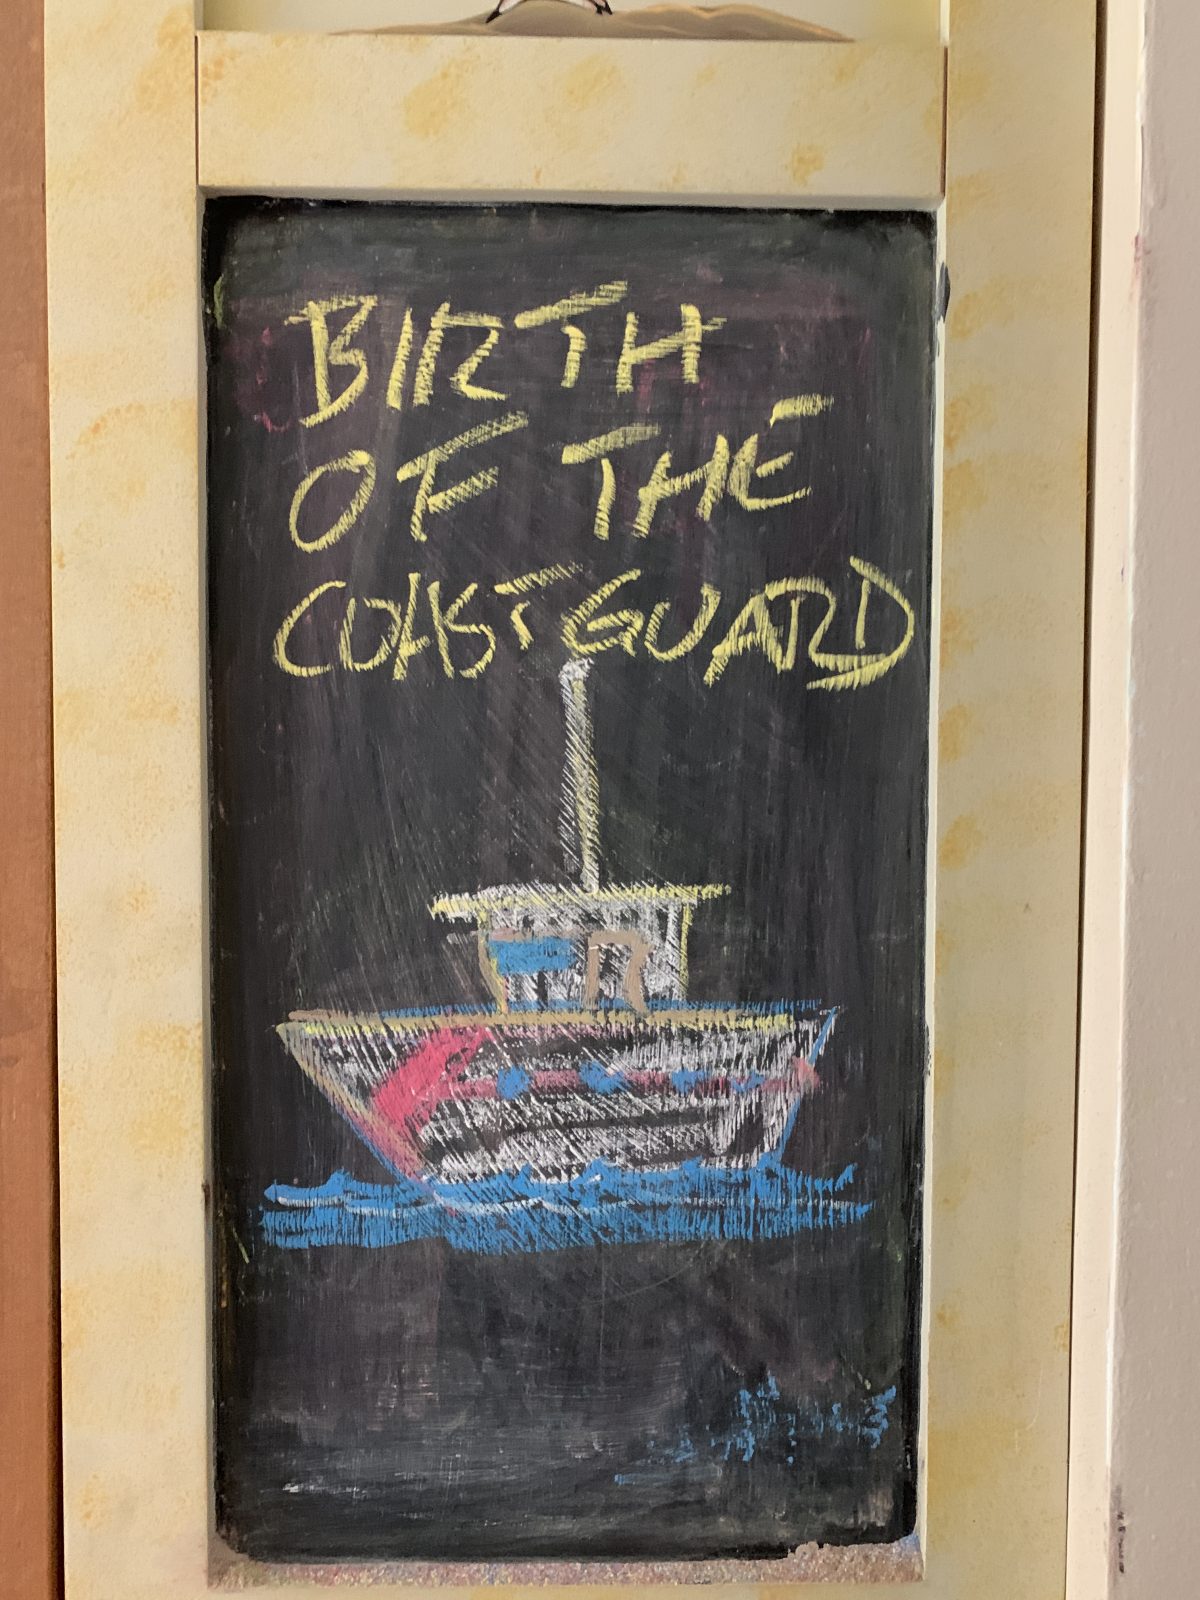 BIRTH
OF THE
COAST GUARD